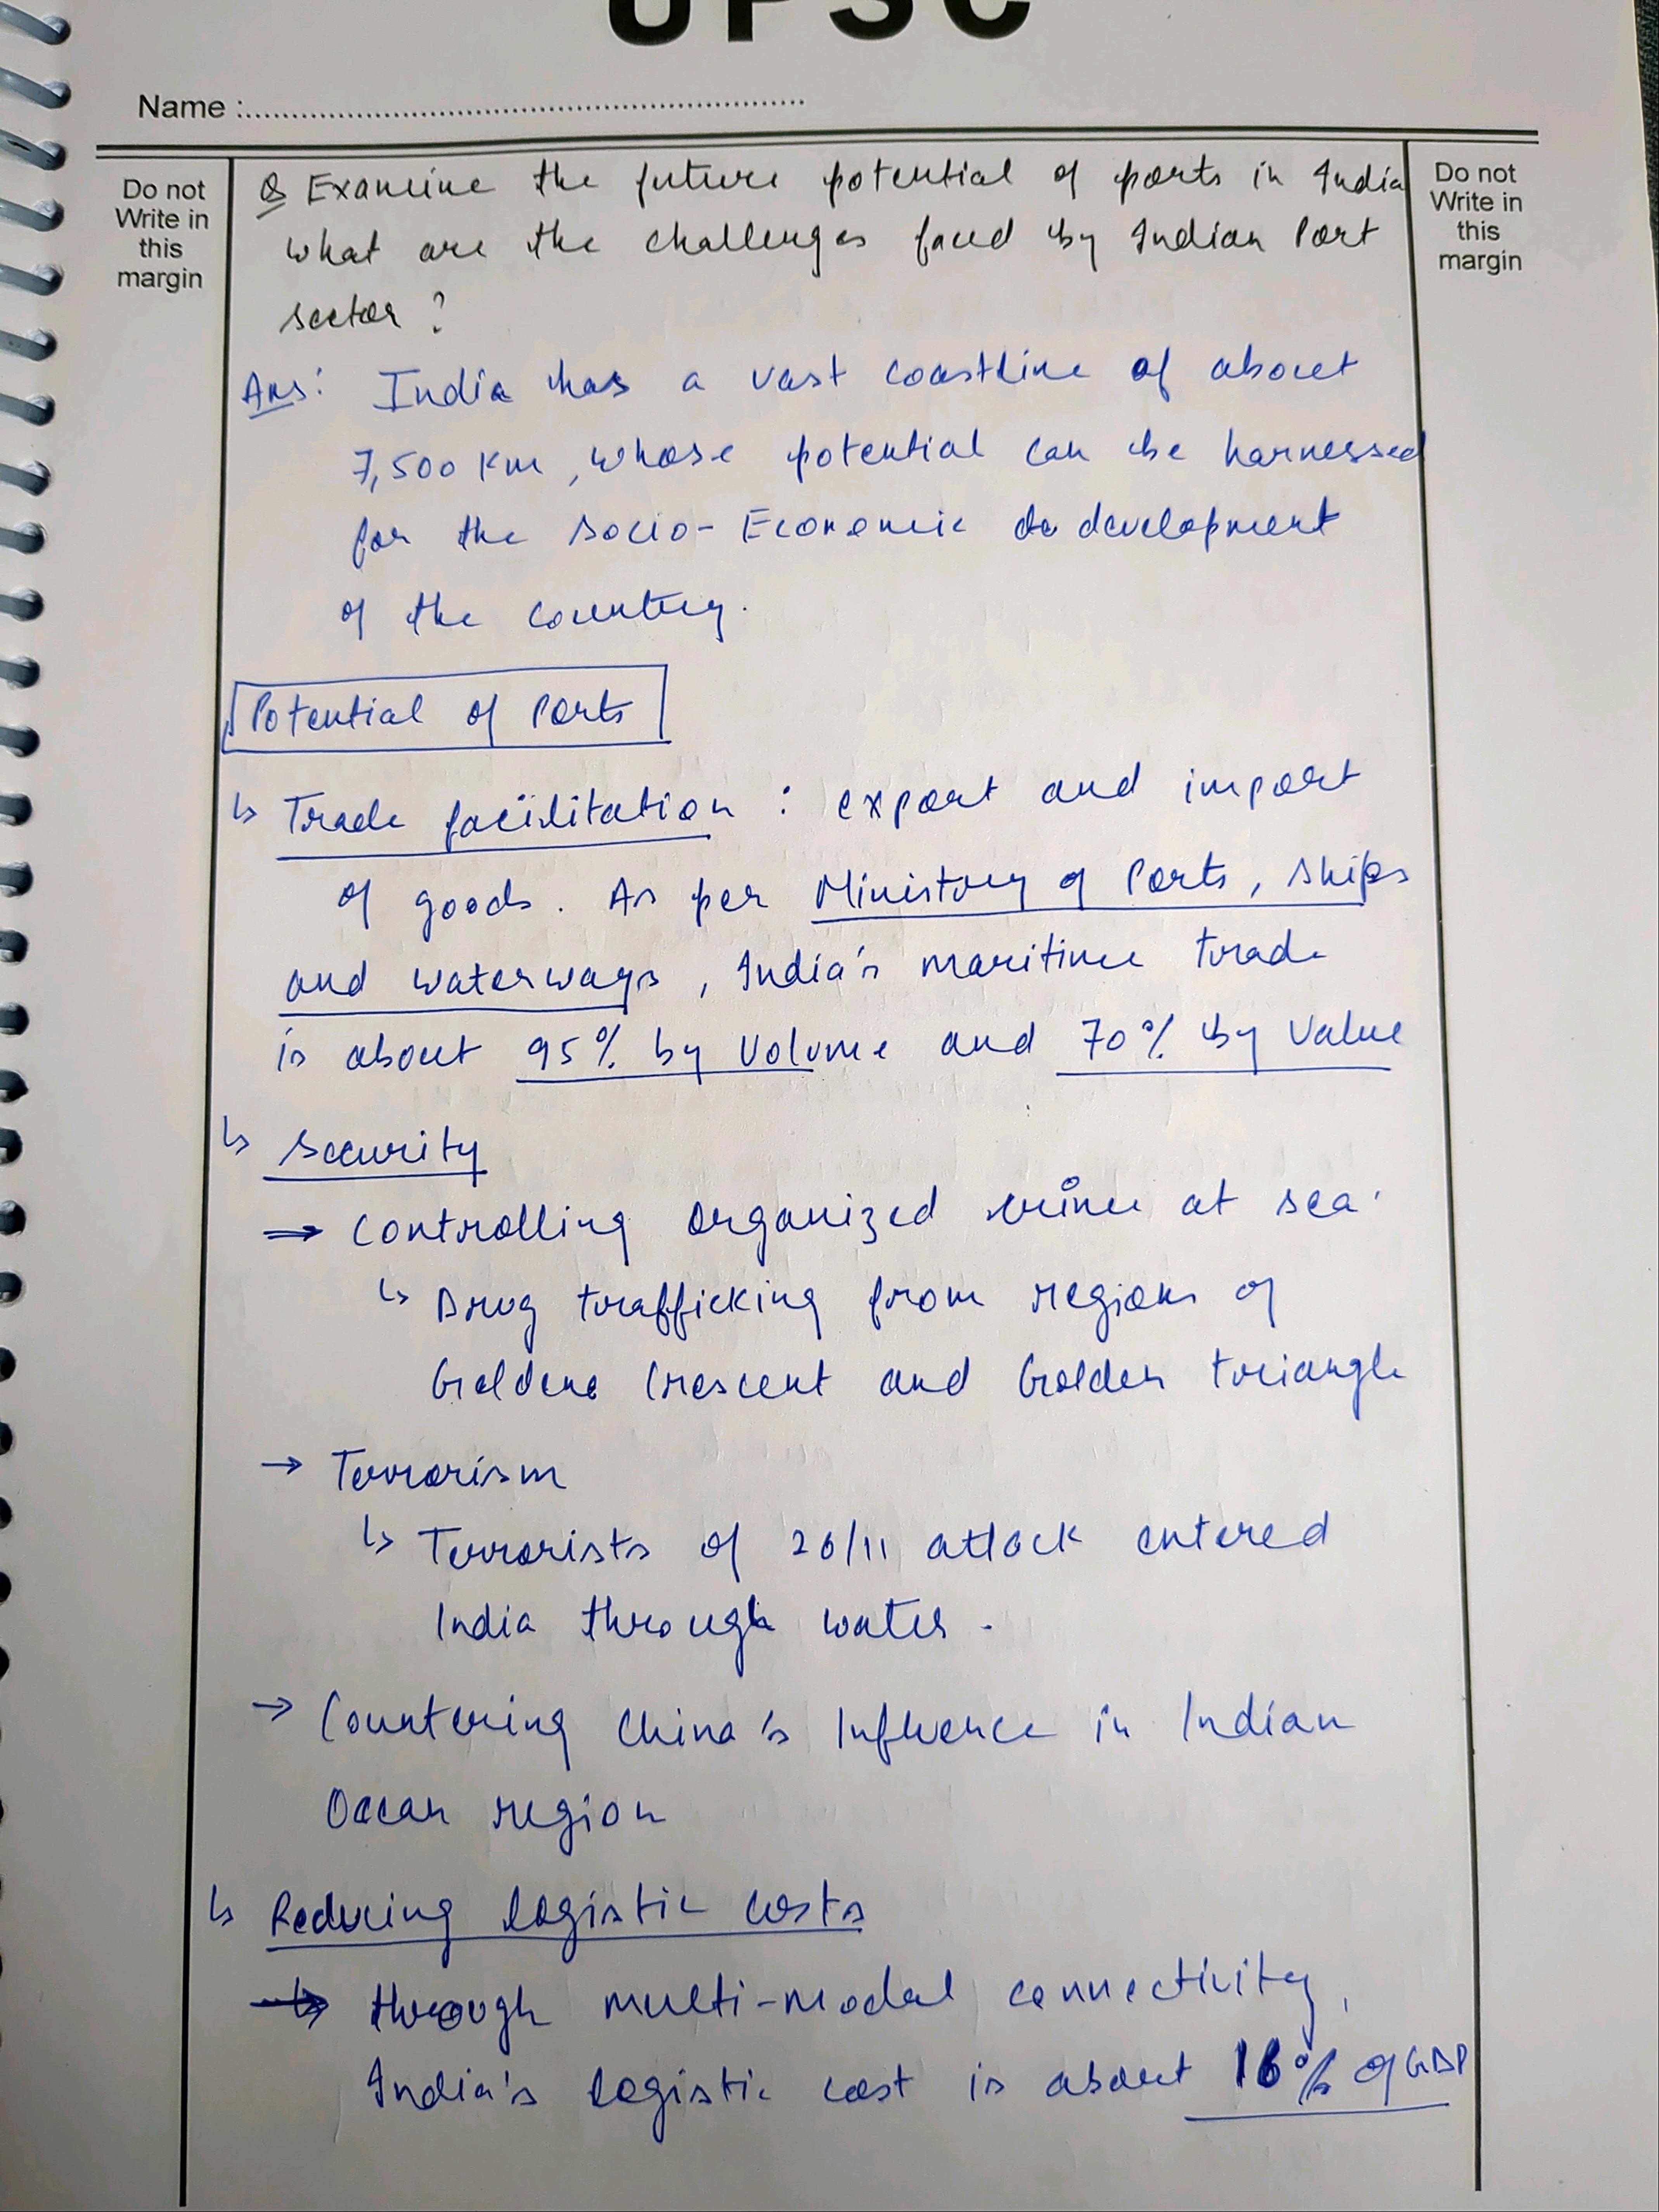 UPSC
Name :
Do not
Write in
this
margin
Do not
Write in
this
margin
Q Examine the future potential of ports in India
what are the challenges faced by Indian Port
sector ?
Ans: India has a vast coastline of about
7,500 Km, whose potential can be harnessed
for the socio-Economic development
of the country.
Potential of Ports
↳ Trade facilitation : export and import
of goods. As per Ministry of Ports, ships
and waterways, India's maritime trade
is about 95% by Volume and 70% by Value
↳ Security
→ Controlling organized crime at sea.
↳ Drug trafficking from regions of
Goldene Crescent and Golden triangle
→ Terrorism
↳ Terrorists of 26/11 attack entered
India through water.
→ Countering China's Influence in Indian
Ocean region
↳ Reducing logistic costs
↳ through multi-modal connectivity,
India's logistic cost is about 16% of GDP